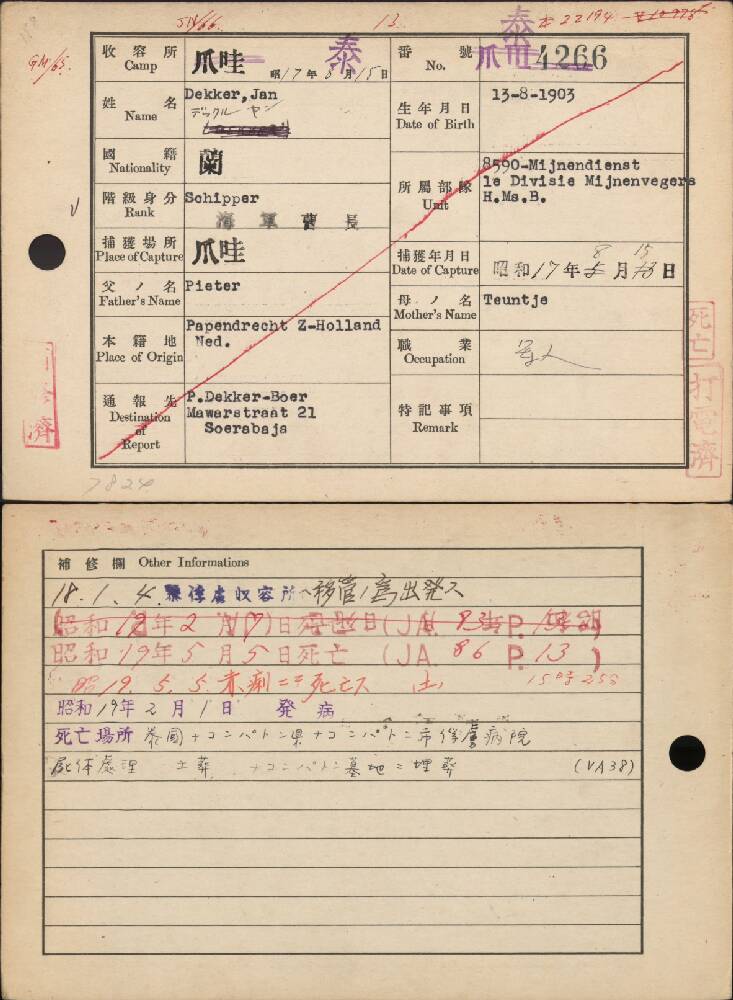 5N/66.
13
泰
GM/65.
收容所 Camp
爪哇
泰
昭17年8月15日
番號 No.
爪
4266
姓名 Name
Dekker,Jan
デックル ヤン
生年月日 Date of Birth
13-8-1903
國籍 Nationality
蘭
所屬部隊 Unit
8590-Mijnendienst
1e Divisie Mijnenvegers
H.Ms.B.
階級身分 Rank
Schipper
海軍曹長
捕獲場所 Place of Capture
爪哇
捕獲年月日 Date of Capture
昭和17年8月15日
父ノ名 Father's Name
Pieter
母ノ名 Mother's Name
Teuntje
本籍地 Place of Origin
Papendrecht Z-Holland
Ned.
職業 Occupation
軍人
通報先 Destination of Report
P.Dekker-Boer
Mawarstraat 21
Soerabaja
特記事項 Remark
死亡
打電濟
濟
7824
補修欄 Other Informations
18.1.4.泰俘虜収容所ヘ移管ノ為出発ス
昭和19年5月5日死亡 (JA. 86 P. 13 )
昭19.5.5.赤痢ニテ死亡ス
昭和19年2月1日 発病
死亡場所 泰國ナコンパトン県ナコンパトン市俘虜病院
屍体處理 土葬 ナコンパトン墓地ニ埋葬 (VA38)